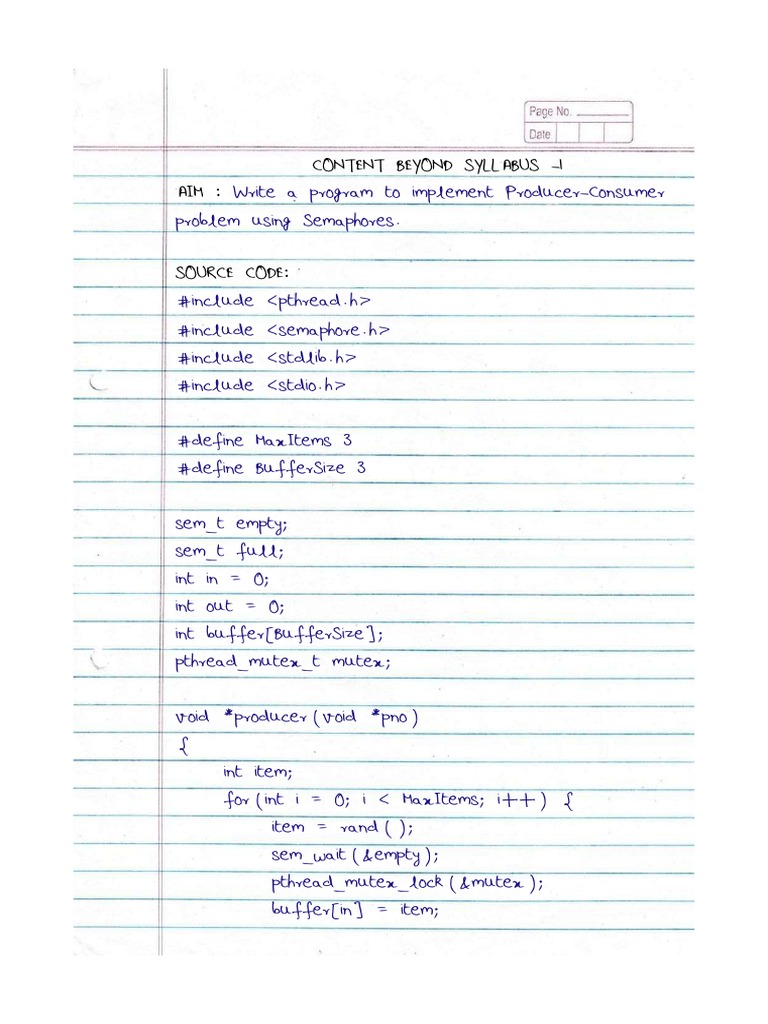 Page No.
Date
CONTENT BEYOND SYLLABUS -1
AIM : Write a program to implement Producer-Consumer
problem using Semaphores.
SOURCE CODE:
#include <pthread.h>
#include <semaphore.h>
#include <stdlib.h>
#include <stdio.h>
#define MaxItems 3
#define BufferSize 3
sem_t empty;
sem_t full;
int in = 0;
int out = 0;
int buffer[BufferSize];
pthread_mutex_t mutex;
void *producer(void *pno)
{
int item;
for(int i = 0; i < MaxItems; i++) {
item = rand();
sem_wait(&empty);
pthread_mutex_lock(&mutex);
buffer[in] = item;